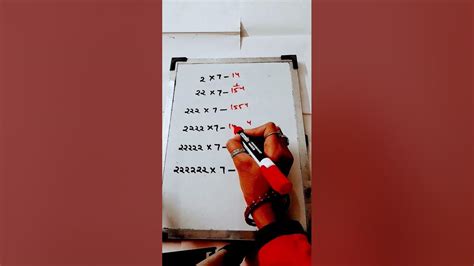 2 × 7 - 14
22 × 7 - 154
222 × 7 - 1554
2222 × 7 - 1 4
22222 × 7 -
222222 × 7 -